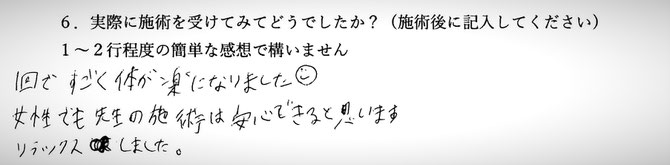 6．実際に施術を受けてみてどうでしたか？（施術後に記入してください）
1～2行程度の簡単な感想で構いません
1回で すごく体が楽になりました☺
女性でも先生の施術は安心できると思います
リラックス しました。